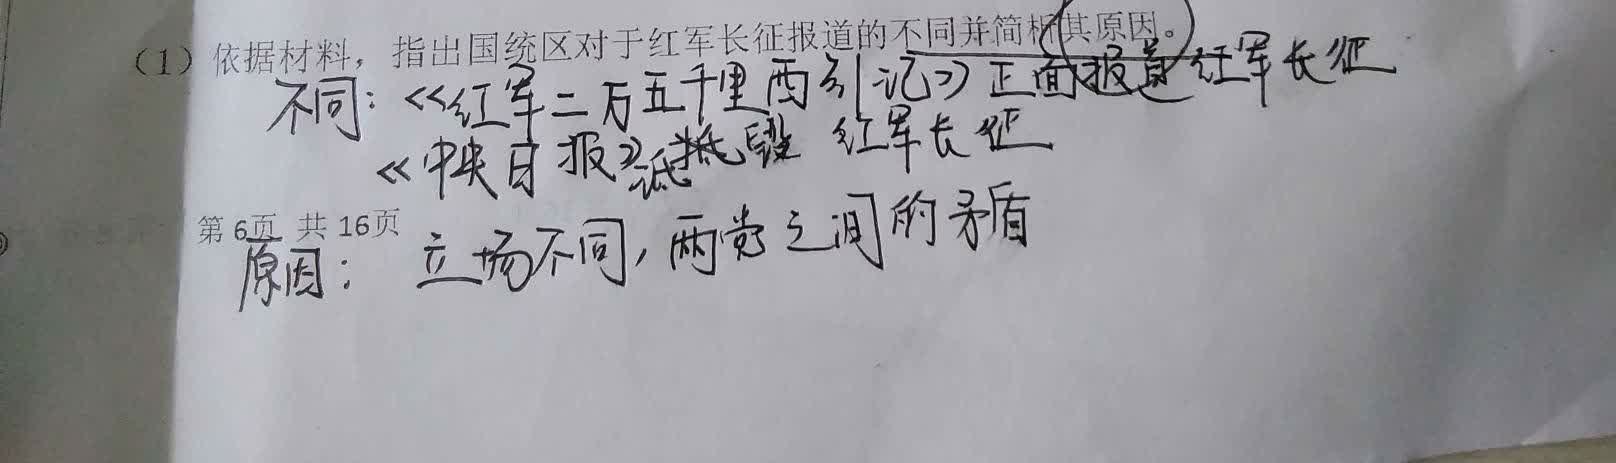 （1）依据材料，指出国统区对于红军长征报道的不同并简析其原因。
不同：《红军二万五千里西引记》正面报道红军长征
《中央日报》诋毁 红军长征
第 6页 共 16页
原因： 立场不同，两党之间的矛盾